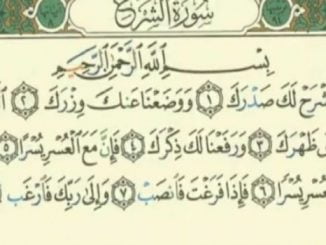 سُورَةُ الشَّرْحِ
بِسْمِ اللَّهِ الرَّحْمَٰنِ الرَّحِيمِ
شْرَحْ لَكَ صَدْرَكَ ١ وَوَضَعْنَا عَنكَ وِزْرَكَ ٢
ظَهْرَكَ ٣ وَرَفَعْنَا لَكَ ذِكْرَكَ ٤ فَإِنَّ مَعَ الْعُسْرِ يُسْرًا ٥
لْعُسْرِ يُسْرًا ٦ فَإِذَا فَرَغْتَ فَانصَبْ ٧ وَإِلَىٰ رَبِّكَ فَارْغَب